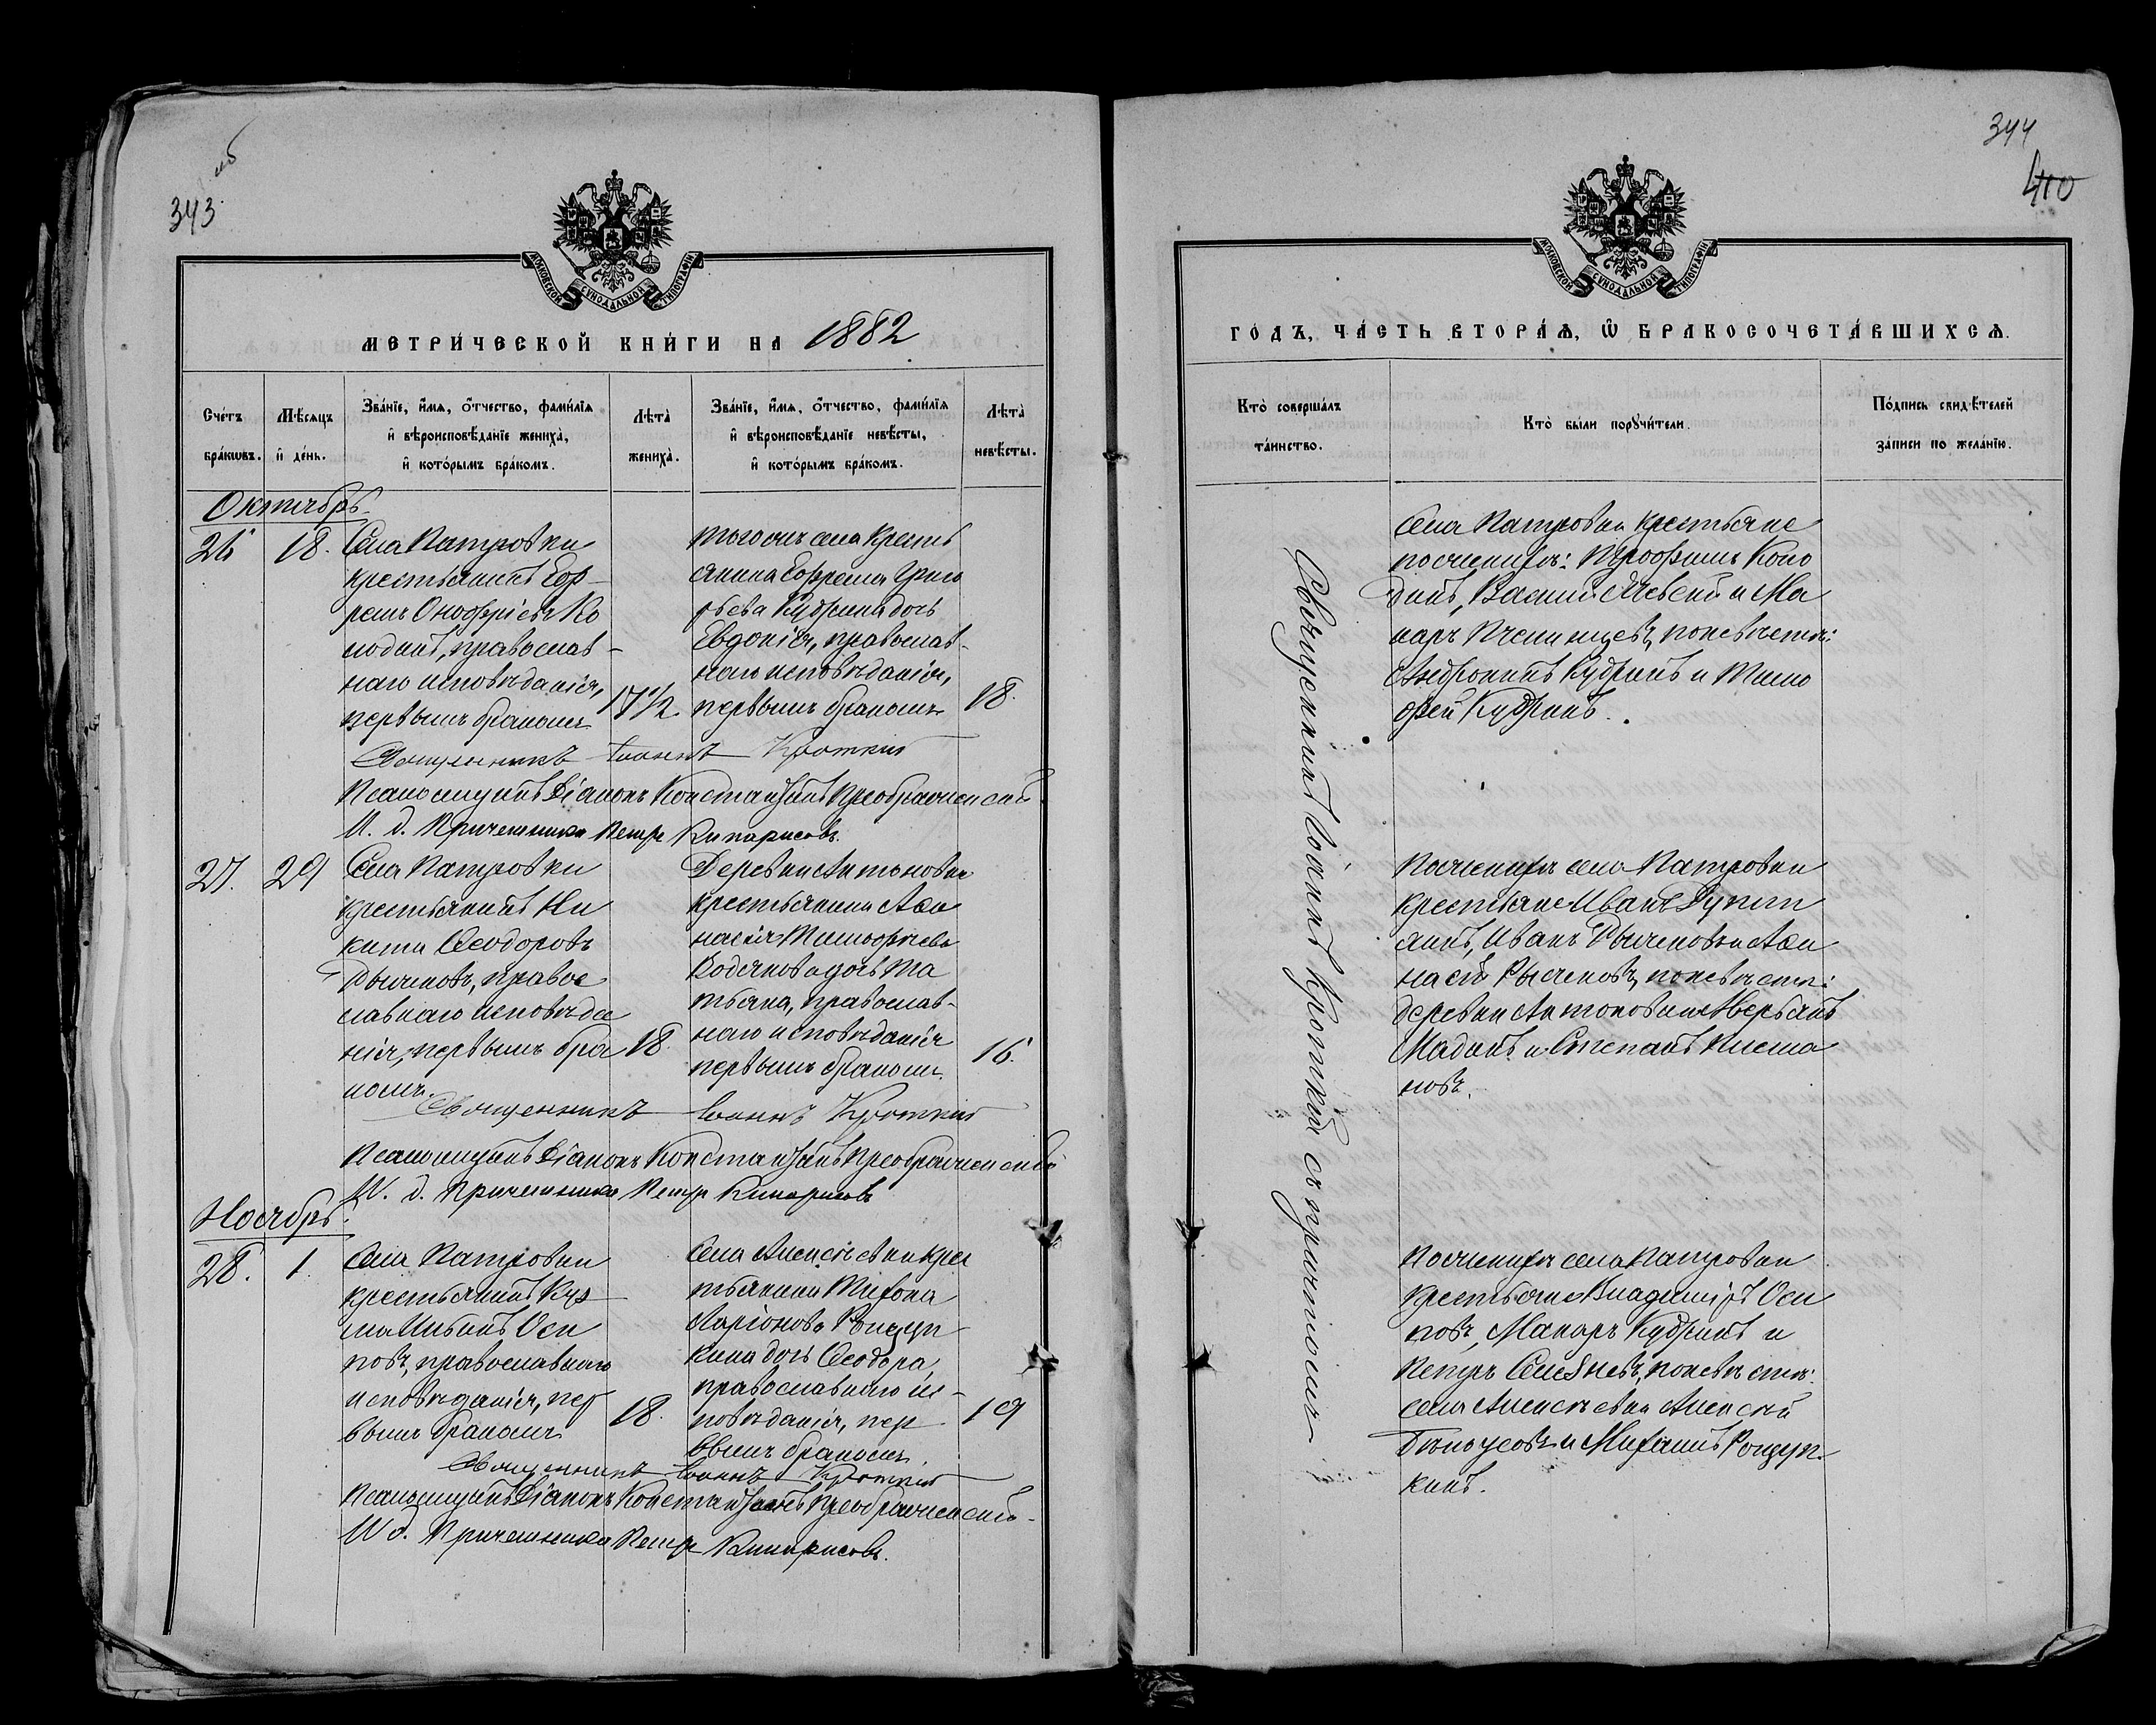 343
344
400
МОСКОВСКОЙ СѴНОДАЛЬНОЙ ТИПОГРАФІИ
МЕТРИ́ЧЕСКОЙ КНИ́ГИ НА 1882
Сче́тъ бра́кωвъ.
Мѣ́сяцъ и҆ де́нь.
Зва́нїе, и҆́мѧ, ѻ҆́тчество, фами́лїѧ
и҆ вѣроисповѣ́данїе жениха̀,
и҆ кото́рымъ бра́комъ.
Лѣта̀ жениха̀.
Зва́нїе, и҆́мѧ, ѻ҆́тчество, фами́лїѧ
и҆ вѣроисповѣ́данїе невѣ́сты,
и҆ кото́рымъ бра́комъ.
Лѣта̀ невѣ́сты.
Октябрь.
26 18. Села Патровки
крестьянинъ Еф-
ремъ Онофріевъ Ко
лодинъ, православ-
наго исповѣданія,
первымъ бракомъ
17 1/2
тогожъ села кресть
янина Ефрема Григо
рьева Кудрина дочь
Евдокія, православ-
наго исповѣданія,
первымъ бракомъ
18.
Священникъ Іоаннъ Кроткій
Псаломщикъ Діаконъ Константинъ Преображенскій
И. д. Причетника Петръ Кипарисовъ.
27. 29 Села Патровки
крестьянинъ Ни
кита Ѳеодоровъ
Рыжковъ, правос
лавнаго исповѣда
нія, первымъ бра
комъ.
18.
Деревни Антоновки
крестьянина Аѳа
насія Тимофѣева
дочь Та
тьяна, православ-
наго исповѣданія
первымъ бракомъ
16.
Священникъ Іоаннъ Кроткій
Псаломщикъ Діаконъ Константинъ Преображенскій
И. д. Причетника Петръ Кипарисовъ
Ноябрь.
28. 1. Села Патровки
крестьянинъ Куз
ма Ильинъ Оси
повъ, православнаго
исповѣданія, пер
вымъ бракомъ
18.
Села Алексѣевки крес
тьянина Мирона
Ларіонова Рощуп
кина дочь Ѳеодора,
православнаго ис-
повѣданія, пер
вымъ бракомъ
19
Священникъ Іоаннъ Кроткій
Псаломщикъ Діаконъ Константинъ Преображенскій
И д. Причетника Петръ Кипарисовъ.
ГО́ДЪ, ЧА́СТЬ ВТОРА́Ѧ, Ѽ БРАКОСОЧЕТА́ВШИХСѦ.
Кто̀ соверша́лъ
та́инство.
Кто̀ бы́ли порꙋчи́тели.
По́дпись свидѣ́телей
за́писи по жела́нїю.
Священникъ Іоаннъ Кроткій съ причтомъ
Села Патровки крестьяне
по женихѣ: Трофимъ Коло
динъ, Василій и Ма
каръ по невѣстѣ:
Андроникъ Кудринъ и Тимо
фей Кудринъ.
По женихѣ села Патровки
крестьяне Иванъ
Иванъ Рыжковъ и Аѳа
насій Рыжковъ, по невѣстѣ:
деревни Антоновки Аверьянъ
Мадинъ и Степанъ
новъ.
По женихѣ села Патровки
крестьяне Владиміръ Оси
повъ, Макаръ Кудринъ и
Петръ по невѣстѣ:
села Алексѣевки Алексѣй
Бѣлоусовъ и Михаилъ Рощуп-
кинъ.